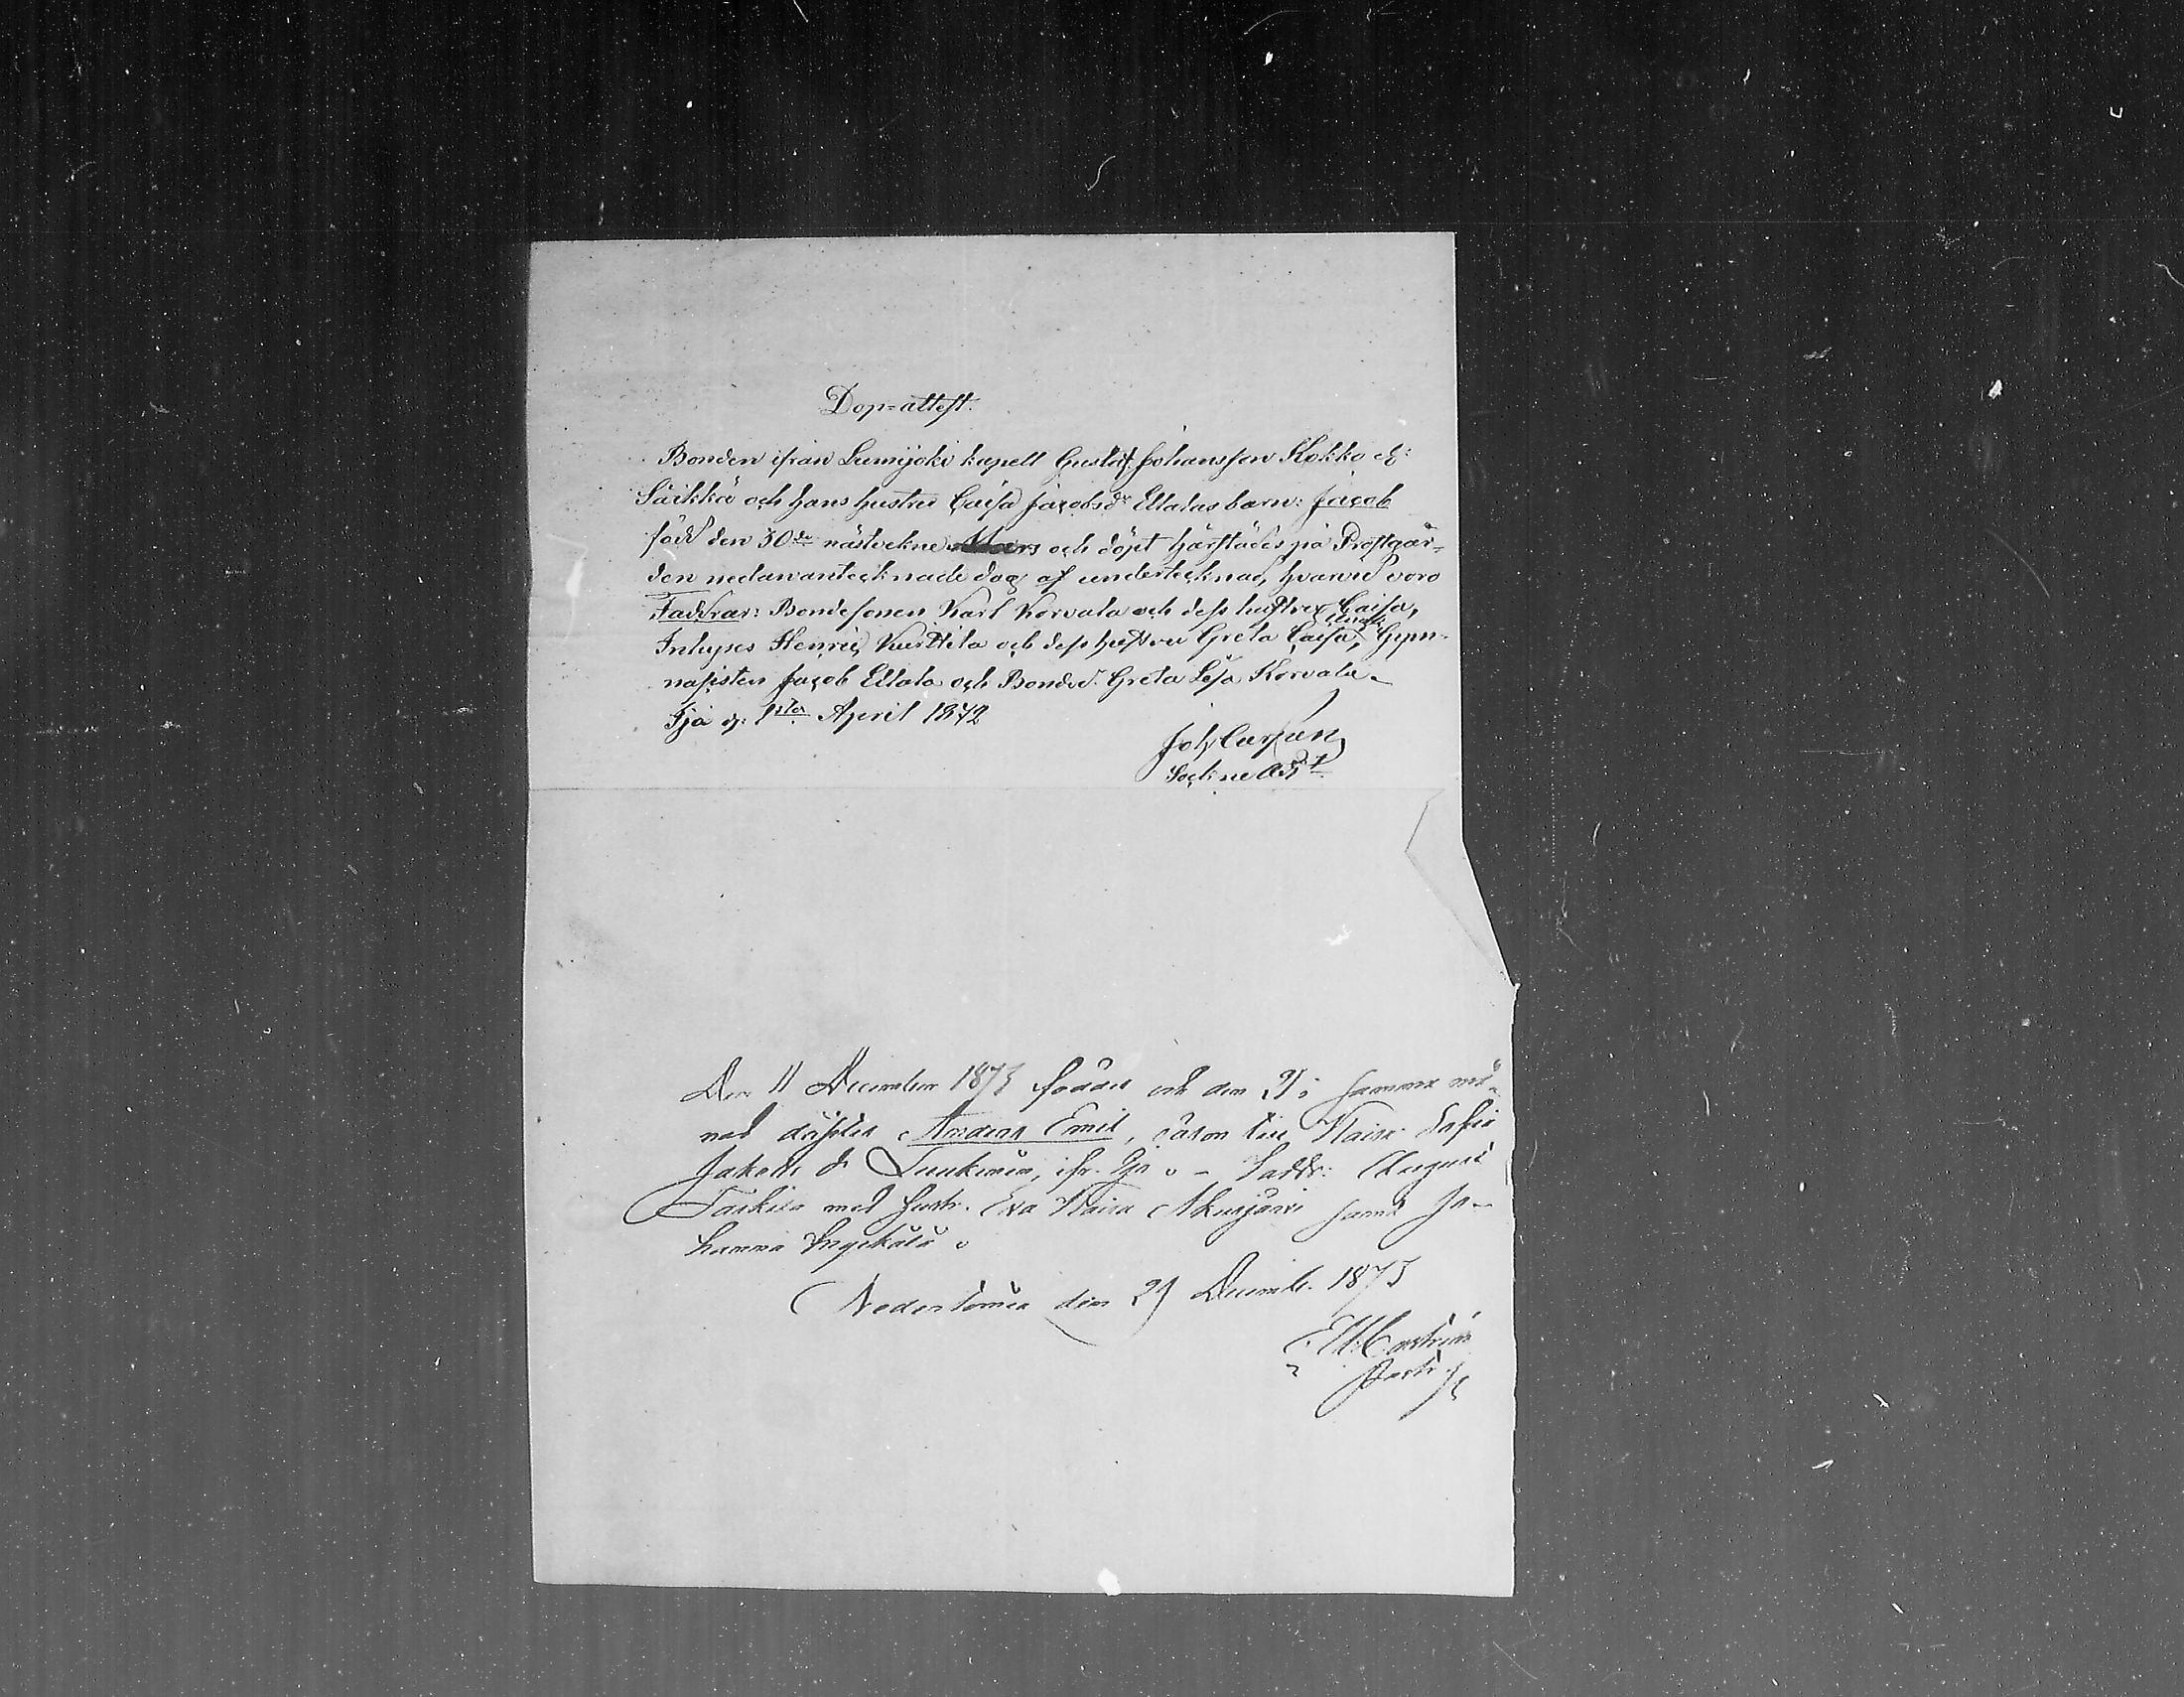 Dop-attest.
Bonden ifrån Lumijoki kapell Gustaf Johansson Kokko el:
Särkkä och hans hustru Caisa Jacobsdr Ellalas barn: Jacob
född den 30de nästvekne Mars och döpt härstädes på Prostgår-
den nedanantecknade dag af undertecknad, hvarvid voro
Faddrar: Bondesonen Karl Korvala och dess hustru Caisa,
Inhyses Henric Kurttila och dess hustru Greta Caisa, Gym-
nasisten Jacob Ellala och Bonded. Greta Lisa Korvala.
Ijo d: 1sta April 1872
Joh Carlsan
Sockne Adjt
Den 11 December 1875 föddes och den 29 i samma må-
nad döptes Andeas Emil, såson till Kaisa Sofia
Jakobs dr Tuukinen, ifr. Ijo. - Faddr: August
Taskila med hustr. Eva Kaisa Akusjärvi samt Jo-
hanna
Nedertorneå den 29 Decemb. 1875
Castrén